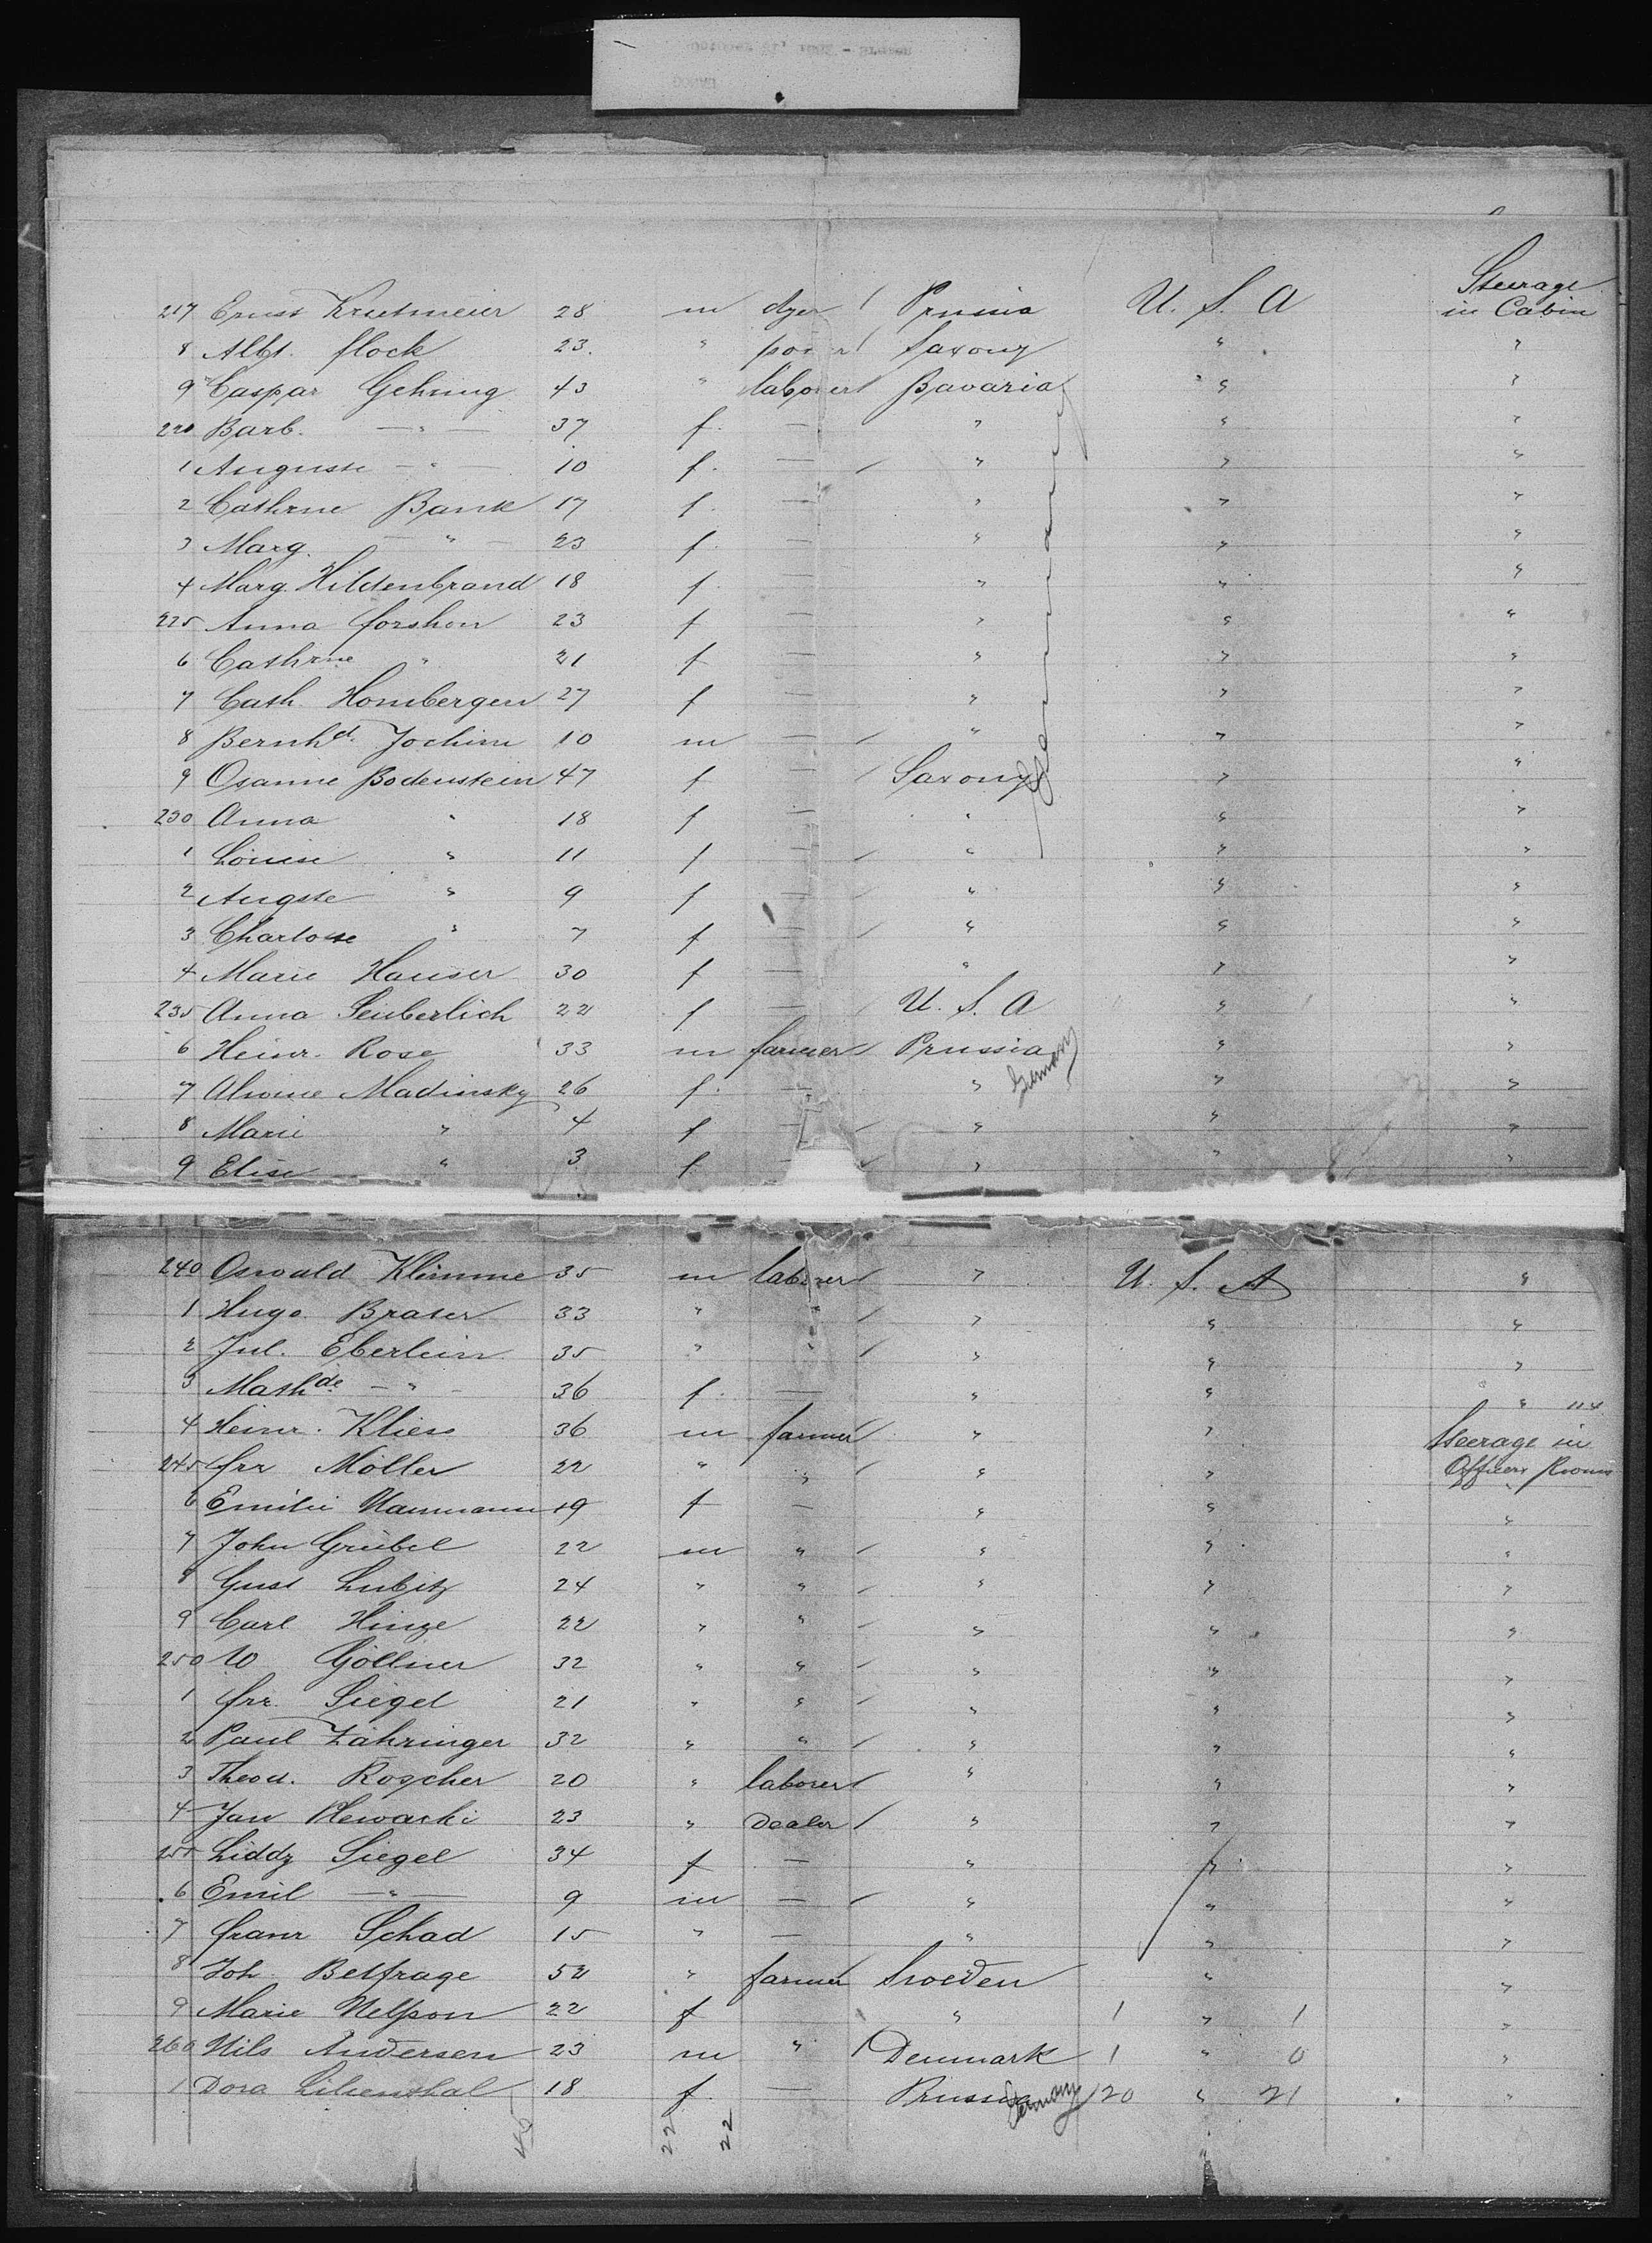 217 Ernst Krutmeier 28 m dyer / Prussia U. S. A Steerage in Cabin
8 Albt. flock 23. " Saxony " "
9 Caspar Gehring 43 " laborer / Bavaria " "
220 Barb. — " — 37 f. — " " "
1 Auguste — " — 10 f. — / " " "
2 Cathrne Bank 17 f. — " " "
3 Marg. — " — 23 f. — " " "
4 Marg. Hildenbrand 18 f. — " " "
225 Anna forshon 23 f — " " "
6 Cathrine " 21 f — " " "
7 Cath. Hombergen 27 f — " " "
8 Bernhd. Jochim 10 m — / " " "
9 Osanne Bodenstein 47 f — / Saxony " "
Germany
230 Anna " 18 f — " " "
1 Louise " 11 f — / " " "
2 Augste " 9 f — / " " "
3 Charlotte " 7 f — / " " "
4 Marie Hauser 30 f — " " "
235 Anna Seuberlich 22 f — U. S. A " "
6 Heinr. Rose 33 m farmer / Prussia " "
Germany
7 Alwine Madinsky 26 f. — " " "
8 Marie " 4 f — / " " "
9 Elise " 3 f — / " " "
240 Oswald Klemme 35 m laborer / " U. S. A "
1 Hugo Braser 33 " " / " " "
2 Jul. Eberlein 35 " " / " " "
3 Mathde — " — 36 f. — " " "
4 Heinr. Kliess 36 m farmer / " " Steerage in
245 frz Möller 22 " " / " " Officers Rooms
6 Emilie Naumann 19 f — " " "
7 John Grübel 22 m " / " " "
8 Gust Lubitz 24 " " / " " "
9 Carl Hinze 22 " " / " " "
250 W Göllner 32 " " / " " "
1 frz. Siegel 21 " " / " " "
2 Paul Zähringer 32 " " / " " "
3 Theod. Roscher 20 " laborer / " " "
4 Jan Plewacki 23 " Dealer / " " "
255 Liddy Siegel 34 f — " " "
6 Emil — " — 9 m — / " " "
7 franz Schad 15 " — " " "
8 Joh. Belfrage 52 " farmer Sweden " "
9 Marie Nelsson 22 f " 1 " 1 "
260 Nils Andersen 23 m " / Denmark 1 " 0 "
1 Dora Lilienthal 18 f. — Prussia Germany 20 " 21 "
22 22